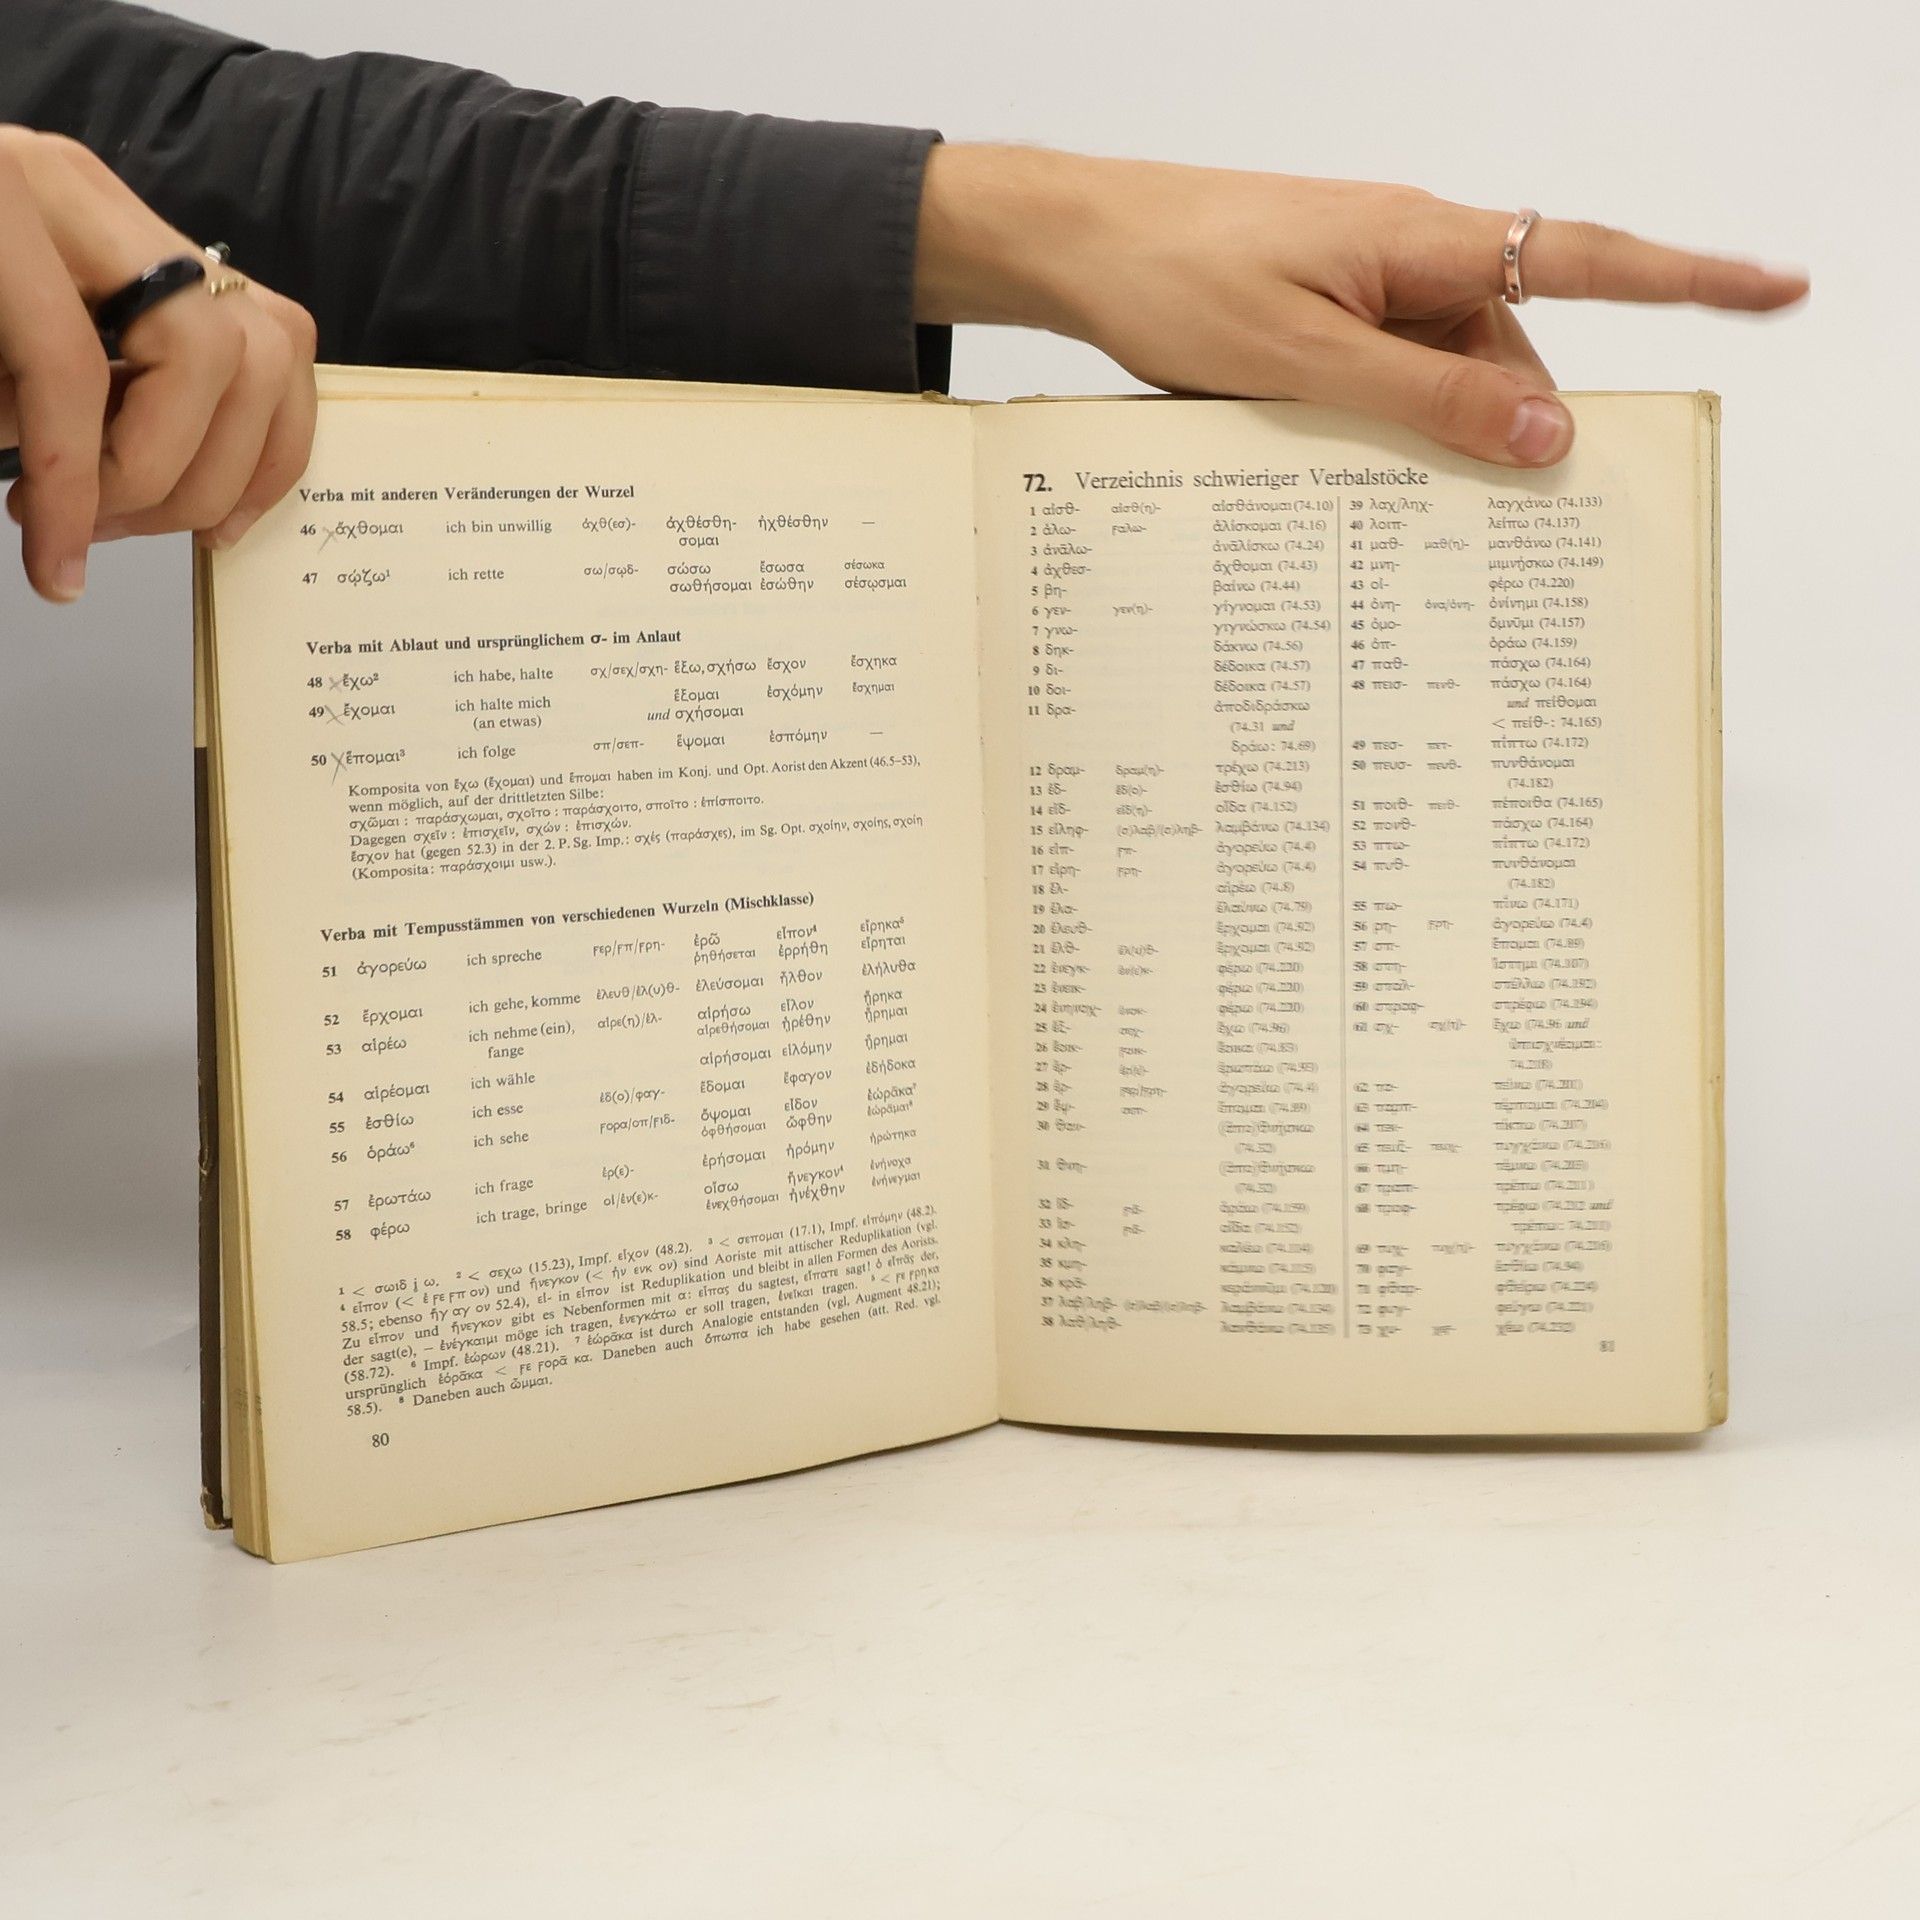 Verba mit anderen Veränderungen der Wurzel
46 ἄχθομαι ich bin unwillig ἀχθ(εσ)- ἀχθέσθη- ἠχθέσθην —
σομαι
47 σῴζω¹ ich rette σω/σῳδ- σώσω ἔσωσα σέσωκα
σωθήσομαι ἐσώθην σέσῳσμαι
Verba mit Ablaut und ursprünglichem σ- im Anlaut
48 ἔχω² ich habe, halte σχ/σεχ/σχη- ἕξω, σχήσω ἔσχον ἔσχηκα
49 ἔχομαι ich halte mich ἕξομαι ἐσχόμην ἔσχημαι
(an etwas) und σχήσομαι
50 ἕπομαι³ ich folge σπ/σεπ- ἕψομαι ἑσπόμην —
Komposita von ἔχω (ἔχομαι) und ἕπομαι haben im Konj. und Opt. Aorist den Akzent (46.5–53),
wenn möglich, auf der drittletzten Silbe:
σχῶμαι : παράσχωμαι, σχοῖτο : παράσχοιτο, σποῖτο : ἐπίσποιτο.
Dagegen σχεῖν : ἐπισχεῖν, σχών : ἐπισχών.
ἔσχον hat (gegen 52.3) in der 2. P. Sg. Imp.: σχές (παράσχες), im Sg. Opt. σχοίην, σχοίης, σχοίη
(Komposita: παράσχοιμι usw.).
Verba mit Tempusstämmen von verschiedenen Wurzeln (Mischklasse)
51 ἀγορεύω ich spreche ϝερ/ϝπ/ϝρη- ἐρῶ εἶπον⁴ εἴρηκα⁵
ῥηθήσεται ἐρρήθη εἴρηται
52 ἔρχομαι ich gehe, komme ἐλευθ/ἐλ(υ)θ- ἐλεύσομαι ἦλθον ἐλήλυθα
53 αἱρέω ich nehme (ein), αἱρε(η)/ἑλ- αἱρήσω εἷλον ᾕρηκα
fange αἱρεθήσομαι ᾑρέθην ᾕρημαι
54 αἱρέομαι ich wähle αἱρήσομαι εἱλόμην ᾕρημαι
55 ἐσθίω ich esse ἐδ(ο)/φαγ- ἔδομαι ἔφαγον ἐδήδοκα
56 ὁράω⁶ ich sehe ϝορα/οπ/ϝιδ- ὄψομαι εἶδον ἑώρακα⁷
ὀφθήσομαι ὤφθην ἑώραμαι⁸
57 ἐρωτάω ich frage ἐρ(ε)- ἐρήσομαι ἠρόμην ἠρώτηκα
58 φέρω ich trage, bringe οἰ/ἐν(ε)κ- οἴσω ἤνεγκον⁴ ἐνήνοχα
ἐνεχθήσομαι ἠνέχθην ἐνήνεγμαι
¹ < σωιδ j ω. ² < σεχω (15.23), Impf. εἶχον (48.2). ³ < σεπομαι (17.1), Impf. εἱπόμην (48.2).
⁴ εἶπον (< ἐ ϝε ϝπ ον) und ἤνεγκον (< ἠν ενκ ον) sind Aoriste mit attischer Reduplikation (vgl.
58.5; ebenso ἤγ αγ ον 52.4), εἰ- in εἶπον ist Reduplikation und bleibt in allen Formen des Aorists.
Zu εἶπον und ἤνεγκον gibt es Nebenformen mit α: εἶπας du sagtest, εἴπατε sagt! ὁ εἴπας der,
der sagt(e), – ἐνέγκαιμι möge ich tragen, ἐνεγκάτω er soll tragen, ἐνεῖκαι tragen. ⁵ < ϝε ϝρηκα
(58.72). ⁶ Impf. ἑώρων (48.21). ⁷ ἑώρακα ist durch Analogie entstanden (vgl. Augment 48.21);
ursprünglich ἑόρακα < ϝε ϝορᾱ κα. Daneben auch ὄπωπα ich habe gesehen (att. Red. vgl.
58.5). ⁸ Daneben auch ὦμμαι.
80
72. Verzeichnis schwieriger Verbalstöcke
1 αἰσθ- αἰσθ(η)- αἰσθάνομαι (74.10)
2 ἁλω- ϝαλω- ἁλίσκομαι (74.16)
3 ἀνᾱλω- ἀνᾱλίσκω (74.24)
4 ἀχθεσ- ἄχθομαι (74.43)
5 βη- βαίνω (74.44)
6 γεν- γεν(η)- γίγνομαι (74.53)
7 γνω- γιγνώσκω (74.54)
8 δηκ- δάκνω (74.56)
9 δι- δέδοικα (74.57)
10 δοι- δέδοικα (74.57)
11 δρα- ἀποδιδράσκω
(74.31 und
δράω: 74.69)
12 δραμ- δραμ(η)- τρέχω (74.213)
13 ἐδ- ἐδ(ο)- ἐσθίω (74.94)
14 εἰδ- εἰδ(η)- οἶδα (74.152)
15 εἰληφ- (σ)λαβ/(σ)ληβ- λαμβάνω (74.134)
16 εἰπ- ϝπ- ἀγορεύω (74.4)
17 εἰρη- ϝρη- ἀγορεύω (74.4)
18 ἑλ- αἱρέω (74.8)
19 ἐλα- ἐλαύνω (74.79)
20 ἐλευθ- ἔρχομαι (74.92)
21 ἐλθ- ἐλ(υ)θ- ἔρχομαι (74.92)
22 ἐνεγκ- ἐν(ε)κ- φέρω (74.220)
23 ἐνεικ- φέρω (74.220)
24 φέρω (74.220)
25 ἑξ- σεχ- ἔχω (74.96)
26 ἐοικ- ϝοικ- ἔοικα
27 ἐρ- ἐρ(ε)- ἐρωτάω
28 ἐρ- ϝερ/ϝρη- ἀγορεύω (74.4)
29 ἑψ- σεπ- ἕπομαι (74.89)
30 θαν- (ἀπο)θνῄσκω
(74.32)
31 θνη- (ἀπο)θνῄσκω
(74.32)
32 ἰδ- ϝιδ- ὁράω (74.159)
33 ἰσ- ϝιδ- οἶδα (74.152)
34 κλη- καλέω
35 κμη- κάμνω
36 κρᾱ- κεράννῡμι
37 λαβ/ληβ- (σ)λαβ/(σ)ληβ- λαμβάνω (74.134)
38 λαθ/ληθ- λανθάνω (74.135)
39 λαχ/ληχ- λαγχάνω (74.133)
40 λοιπ- λείπω (74.137)
41 μαθ- μαθ(η)- μανθάνω (74.141)
42 μνη- μιμνῄσκω (74.149)
43 οἰ- φέρω (74.220)
44 ὀνη- ὀνα/ὀνη- ὀνίνημι (74.158)
45 ὀμο- ὄμνῡμι (74.157)
46 ὀπ- ὁράω (74.159)
47 παθ- πάσχω (74.164)
48 πεισ- πενθ- πάσχω (74.164)
und πείθομαι
< πείθ-: 74.165)
49 πεσ- πετ- πίπτω (74.172)
50 πευσ- πευθ- πυνθάνομαι
(74.182)
51 ποιθ- πειθ- πέποιθα (74.165)
52 πονθ- πάσχω (74.164)
53 πτω- πίπτω (74.172)
54 πυθ- πυνθάνομαι
(74.182)
55 πω- πίνω (74.171)
56 ῥη- ϝρη- ἀγορεύω (74.4)
57 σπ- ἕπομαι (74.89)
58 στη- ἵστημι (74.107)
59 σταλ- στέλλω (74.192)
60 στραφ- στρέφω (74.194)
61 σχ- σχ(η)- ἔχω (74.96 und
ὑπισχνέομαι:
74.218)
62 τα- τείνω
63 ταρπ- τέρπομαι (74.204)
64 τεκ- τίκτω (74.207)
65 τευξ- τευχ- τυγχάνω (74.216)
66 τμη- τέμνω
67 τραπ- τρέπω (74.211)
68 τραφ- τρέφω (74.212 und
τρέπω: 74.211)
69 τυχ- τυχ(η)- τυγχάνω (74.216)
70 φαγ- ἐσθίω (74.94)
71 φθαρ- φθείρω (74.224)
72 φυγ- φεύγω (74.221)
73 χυ- χεϝ- χέω (74.232)
81